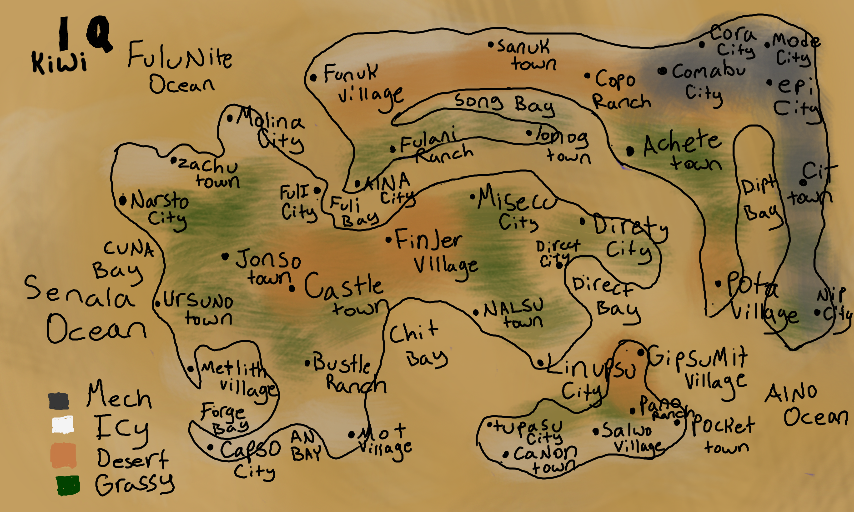 IQ
Kiwi
FuluNite
Ocean
Molina
City
Zachu
town
Narsto
City
CUNA
Bay
Senala
Ocean
Jonso
town
Ursuno
town
Castle
town
FulI
City
Fuli
Bay
AINA
City
Funuk
Village
Sanuk
town
Copo
Ranch
Song Bay
Fulani
Ranch
town
Cora
City
Mode
City
Comabu
City
epi
City
Achete
town
Cit
town
Dipt
Bay
Pota
Village
Nip
City
Misecu
City
Direty
City
Direct
City
Direct
Bay
FinJer
Village
NALSU
town
Chit
Bay
Linupsu
City
Metlith
Village
Forge
Bay
Capso
City
AN
BAY
Bustle
Ranch
Mot
Village
GipsuMit
Village
Pano
Ranch
Pocket
town
tupasu
City
Canon
town
Salwo
Village
AINO
Ocean
Mech
Icy
Desert
Grassy